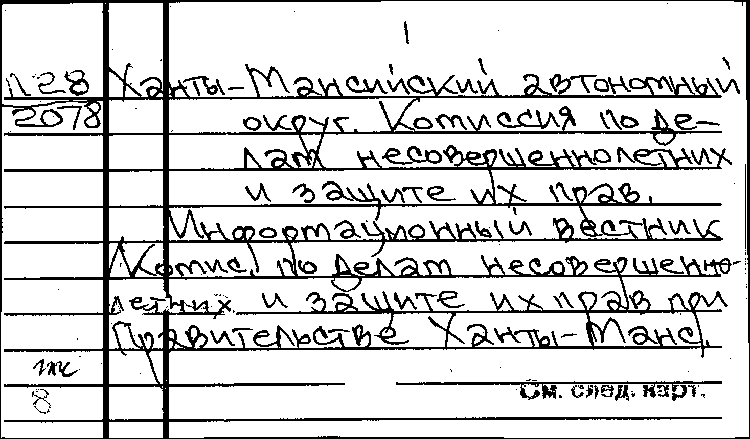 1
П28 Ханты-Мансийский автономный
2078 округ. Комиссия по де-
лам несовершеннолетних
и защите их прав.
Информационный вестник
Комис. по делам несовершенно-
летних и защите их прав при
Правительстве Ханты-Манс.
тк
8
См. след. карт.